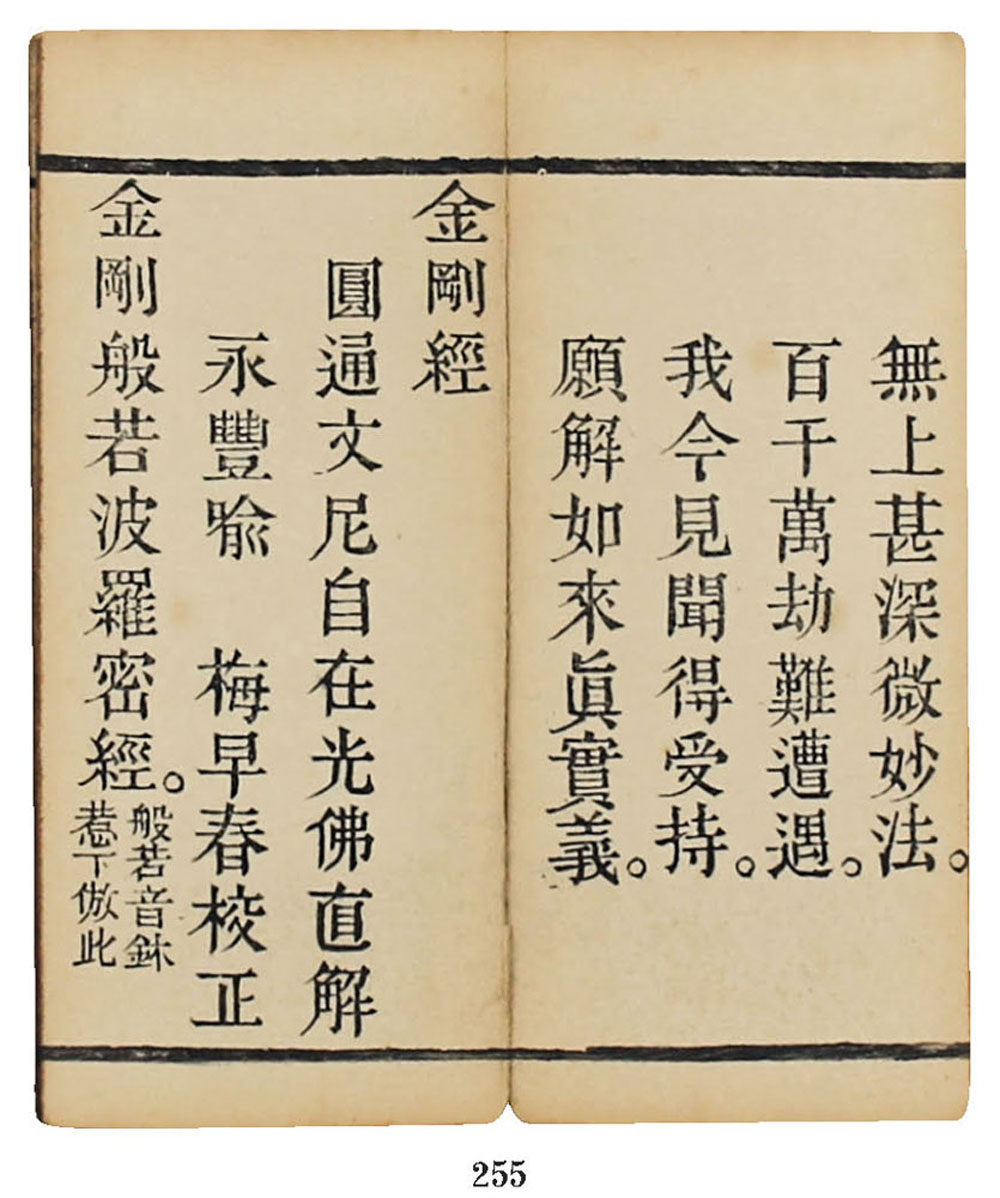 無上甚深微妙法。
百千萬劫難遭遇。
我今見聞得受持。
願解如來眞實義。
金剛經
圓通文尼自在光佛直解
永豐喩 梅早春校正
金剛般若波羅密經。
般若音鉢
惹下倣此
255